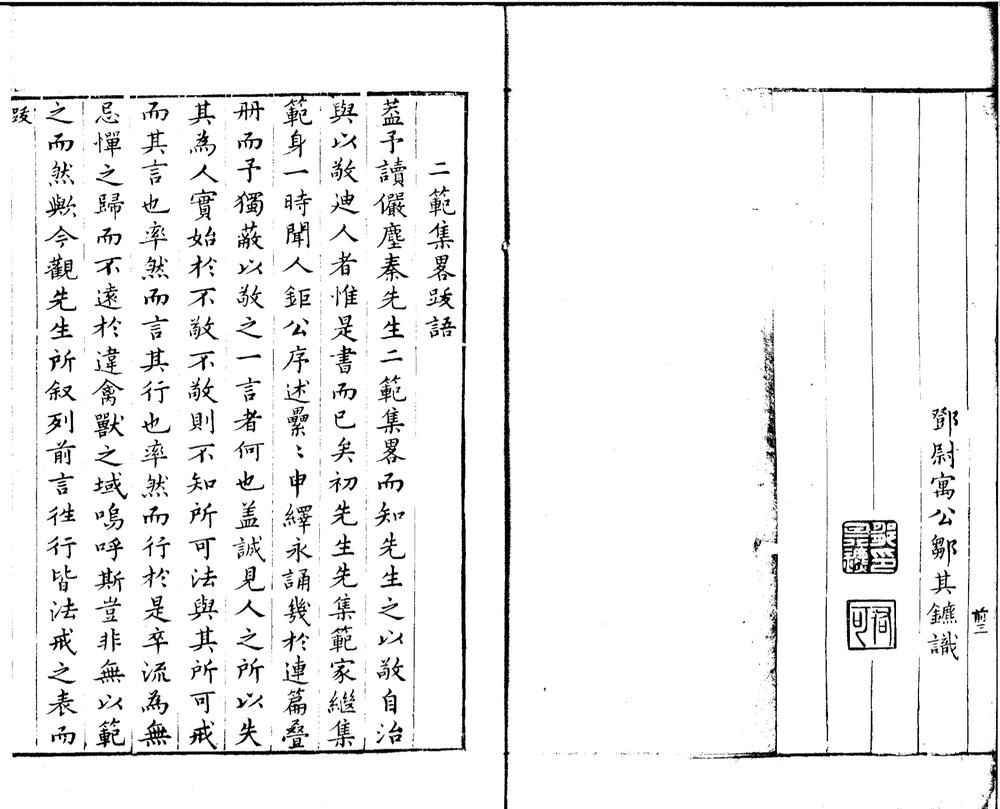 前三
鄧尉寓公鄒其鑣識
二範集畧跋語
葢予讀儼塵秦先生二範集畧而知先生之以敬自治
與以敬廸人者惟是書而已矣初先生先集範家繼集
範身一時聞人鉅公序述纍〻申繹永誦幾於連篇疊
册而予獨蔽以敬之一言者何也盖誠見人之所以失
其為人實始於不敬不敬則不知所可法與其所可戒
而其言也率然而言其行也率然而行於是卒流為無
忌憚之歸而不遠於違禽獸之域嗚呼斯豈非無以範
之而然歟今觀先生所叙列前言徃行皆法戒之表而
跋